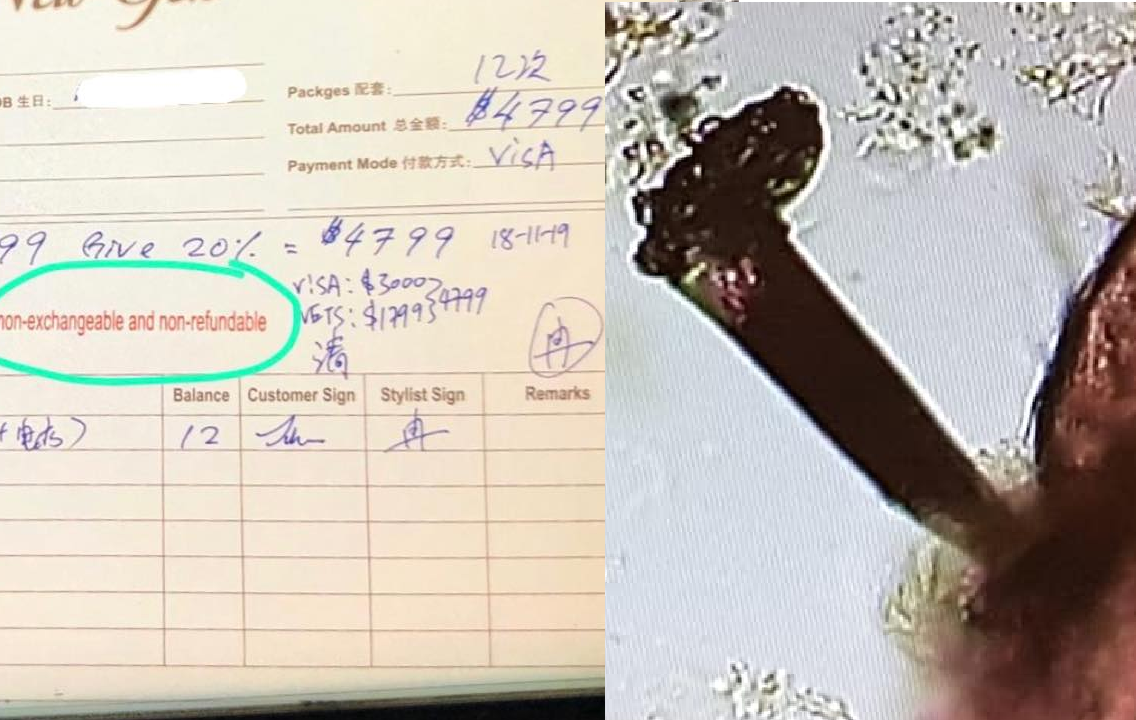 New
OB 生日:
Packges 配套: 12次
Total Amount 总金额: $4799
Payment Mode 付款方式: VISA
99 Give 20% = $4799 18-11-19
non-exchangeable and non-refundable
VISA: $3000
NETS: $1799 } 4799
Balance Customer Sign Stylist Sign Remarks
12